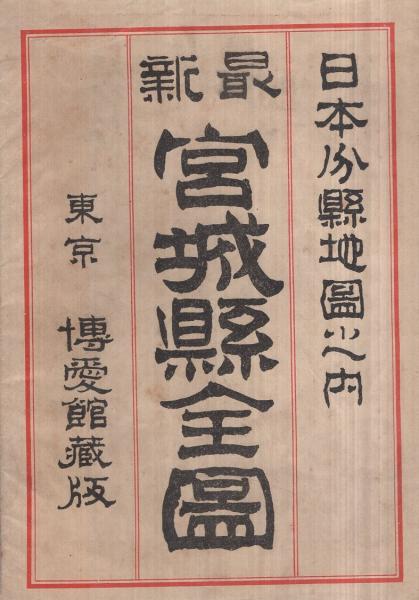 日本分縣地圖之内
最新
宮城縣全圖
東京 博愛館藏版